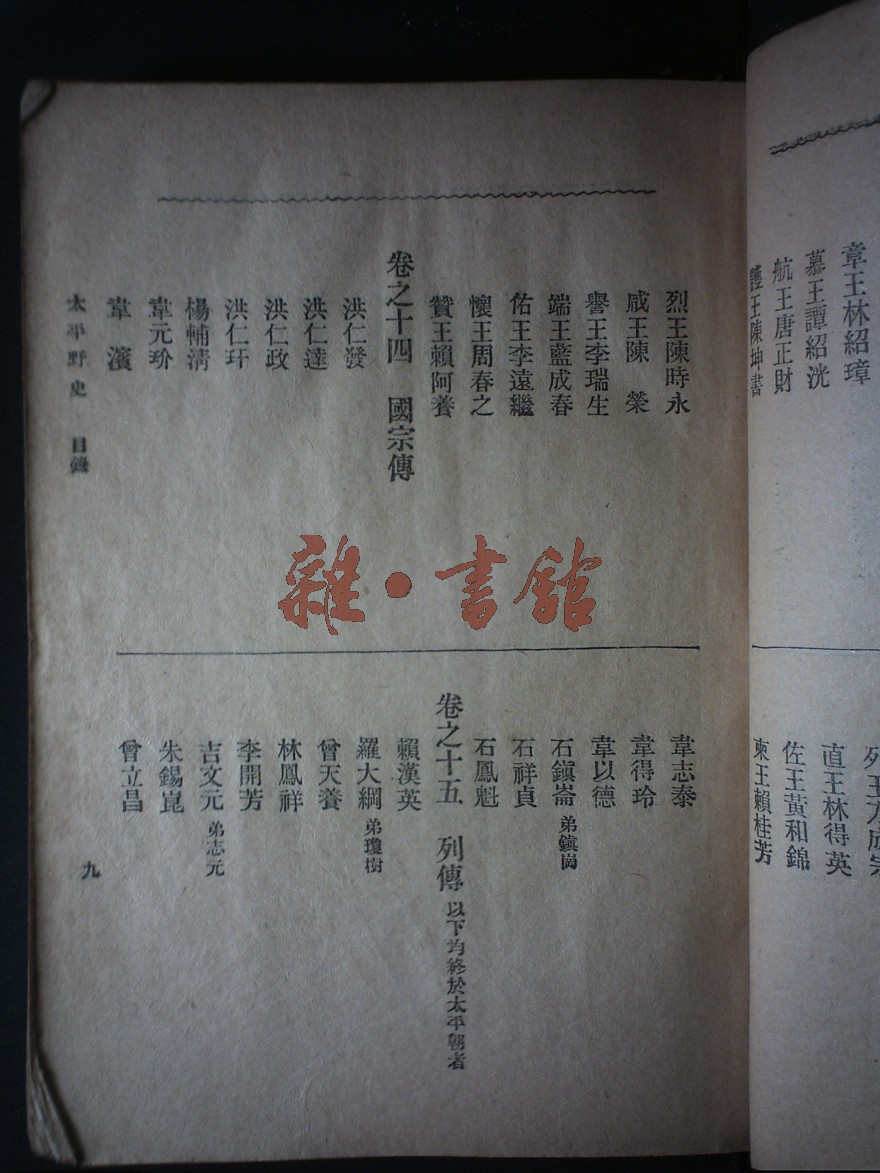 章王林紹璋
慕王譚紹洸
航王唐正財
護王陳坤書
直王林得英
佐王黃和錦
柬王賴桂芳
烈王陳時永
咸王陳榮
譽王李瑞生
端王藍成春
佑王李遠繼
懷王周春之
贊王賴阿養
卷之十四 國宗傳
洪仁發
洪仁達
洪仁政
洪仁玕
楊輔淸
韋元玠
韋濱
韋志泰
韋得玲
韋以德
石鎭崙 弟鎭崗
石祥貞
石鳳魁
卷之十五 列傳 以下均終於太平朝者
賴漢英
羅大綱 弟瓊樹
曾天養
林鳳祥
李開芳
吉文元 弟志元
朱錫崑
曾立昌
太平野史 目錄
九
雜·書館